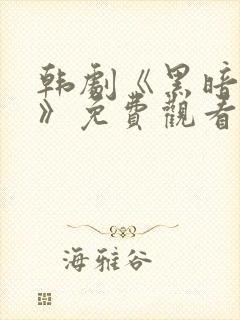 韩劇《黑暗
》免費觀看
海雅谷